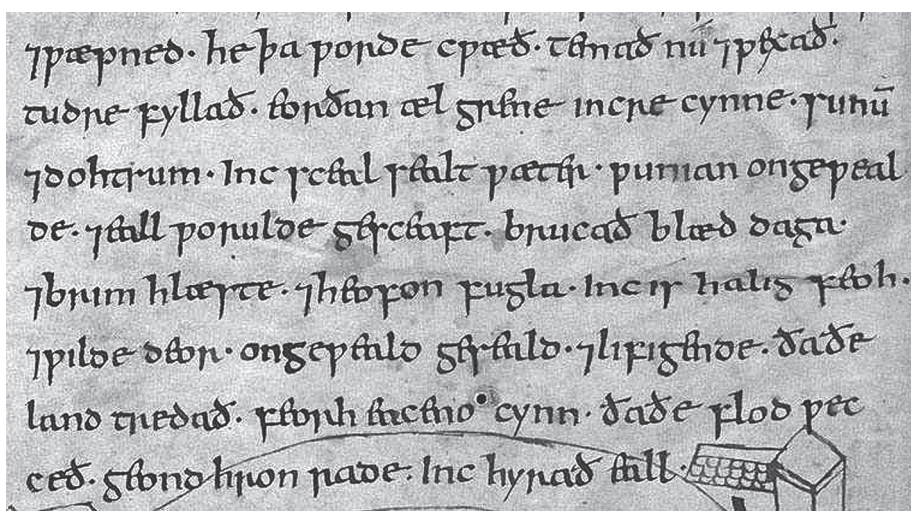 ⁊ƿæpned· he þa ƿorde cƿæð· temað nú ⁊ƿexað·
tudre fyllað· eorðan æl grene incre cynne· sunū
⁊dohtrum· Inc sceal sealt ƿæter· ƿunian ongeƿeal
de· ⁊eall ƿorulde gesceaft· brucað blæd daga·
⁊brim hlæste· ⁊heofon fugla· Inc is halig feoh·
⁊ƿilde deor· ongeƿeald geseald· ⁊lifigende· ðaðe
land tredað· feorh eaceno cynn· ðaðe flod ƿec
ceð· geond hron rade· Inc hyrað eall·